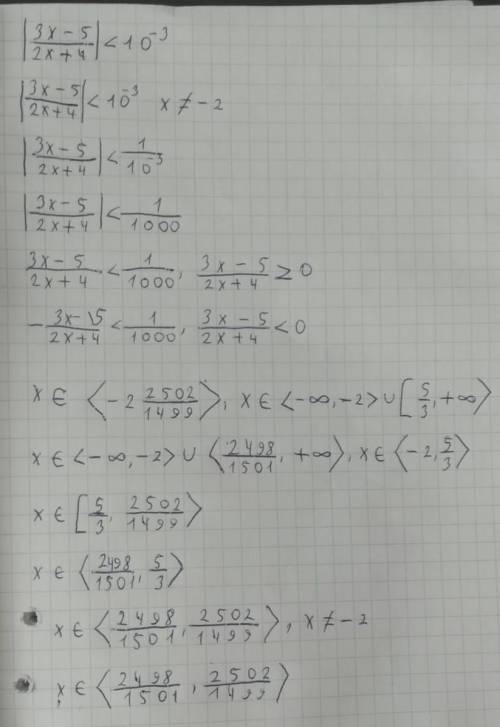 |3x-5/2x+4| < 10^-3
|3x-5/2x+4| < 10^-3 x ≠ -2
|3x-5/2x+4| < 1/10^-3
|3x-5/2x+4| < 1/1000
3x-5/2x+4 < 1/1000, 3x-5/2x+4 ≥ 0
-3x-\5/2x+4 < 1/1000, 3x-5/2x+4 < 0
x ∈ ⟨-2 2502/1499⟩, x ∈ <-∞, -2> ∪ [5/3, +∞⟩
x ∈ <-∞, -2> ∪ ⟨2498/1501, +∞⟩, x ∈ ⟨-2, 5/3⟩
x ∈ [5/3, 2502/1499⟩
x ∈ ⟨2498/1501, 5/3⟩
x ∈ ⟨2498/1501, 2502/1499⟩, x ≠ -2
x ∈ ⟨2498/1501, 2502/1499⟩